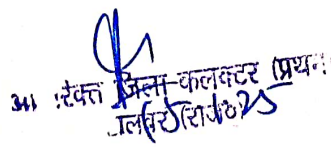 अति रिक्त जिला-कलक्टर (प्रथम)
अलवर (राज०)